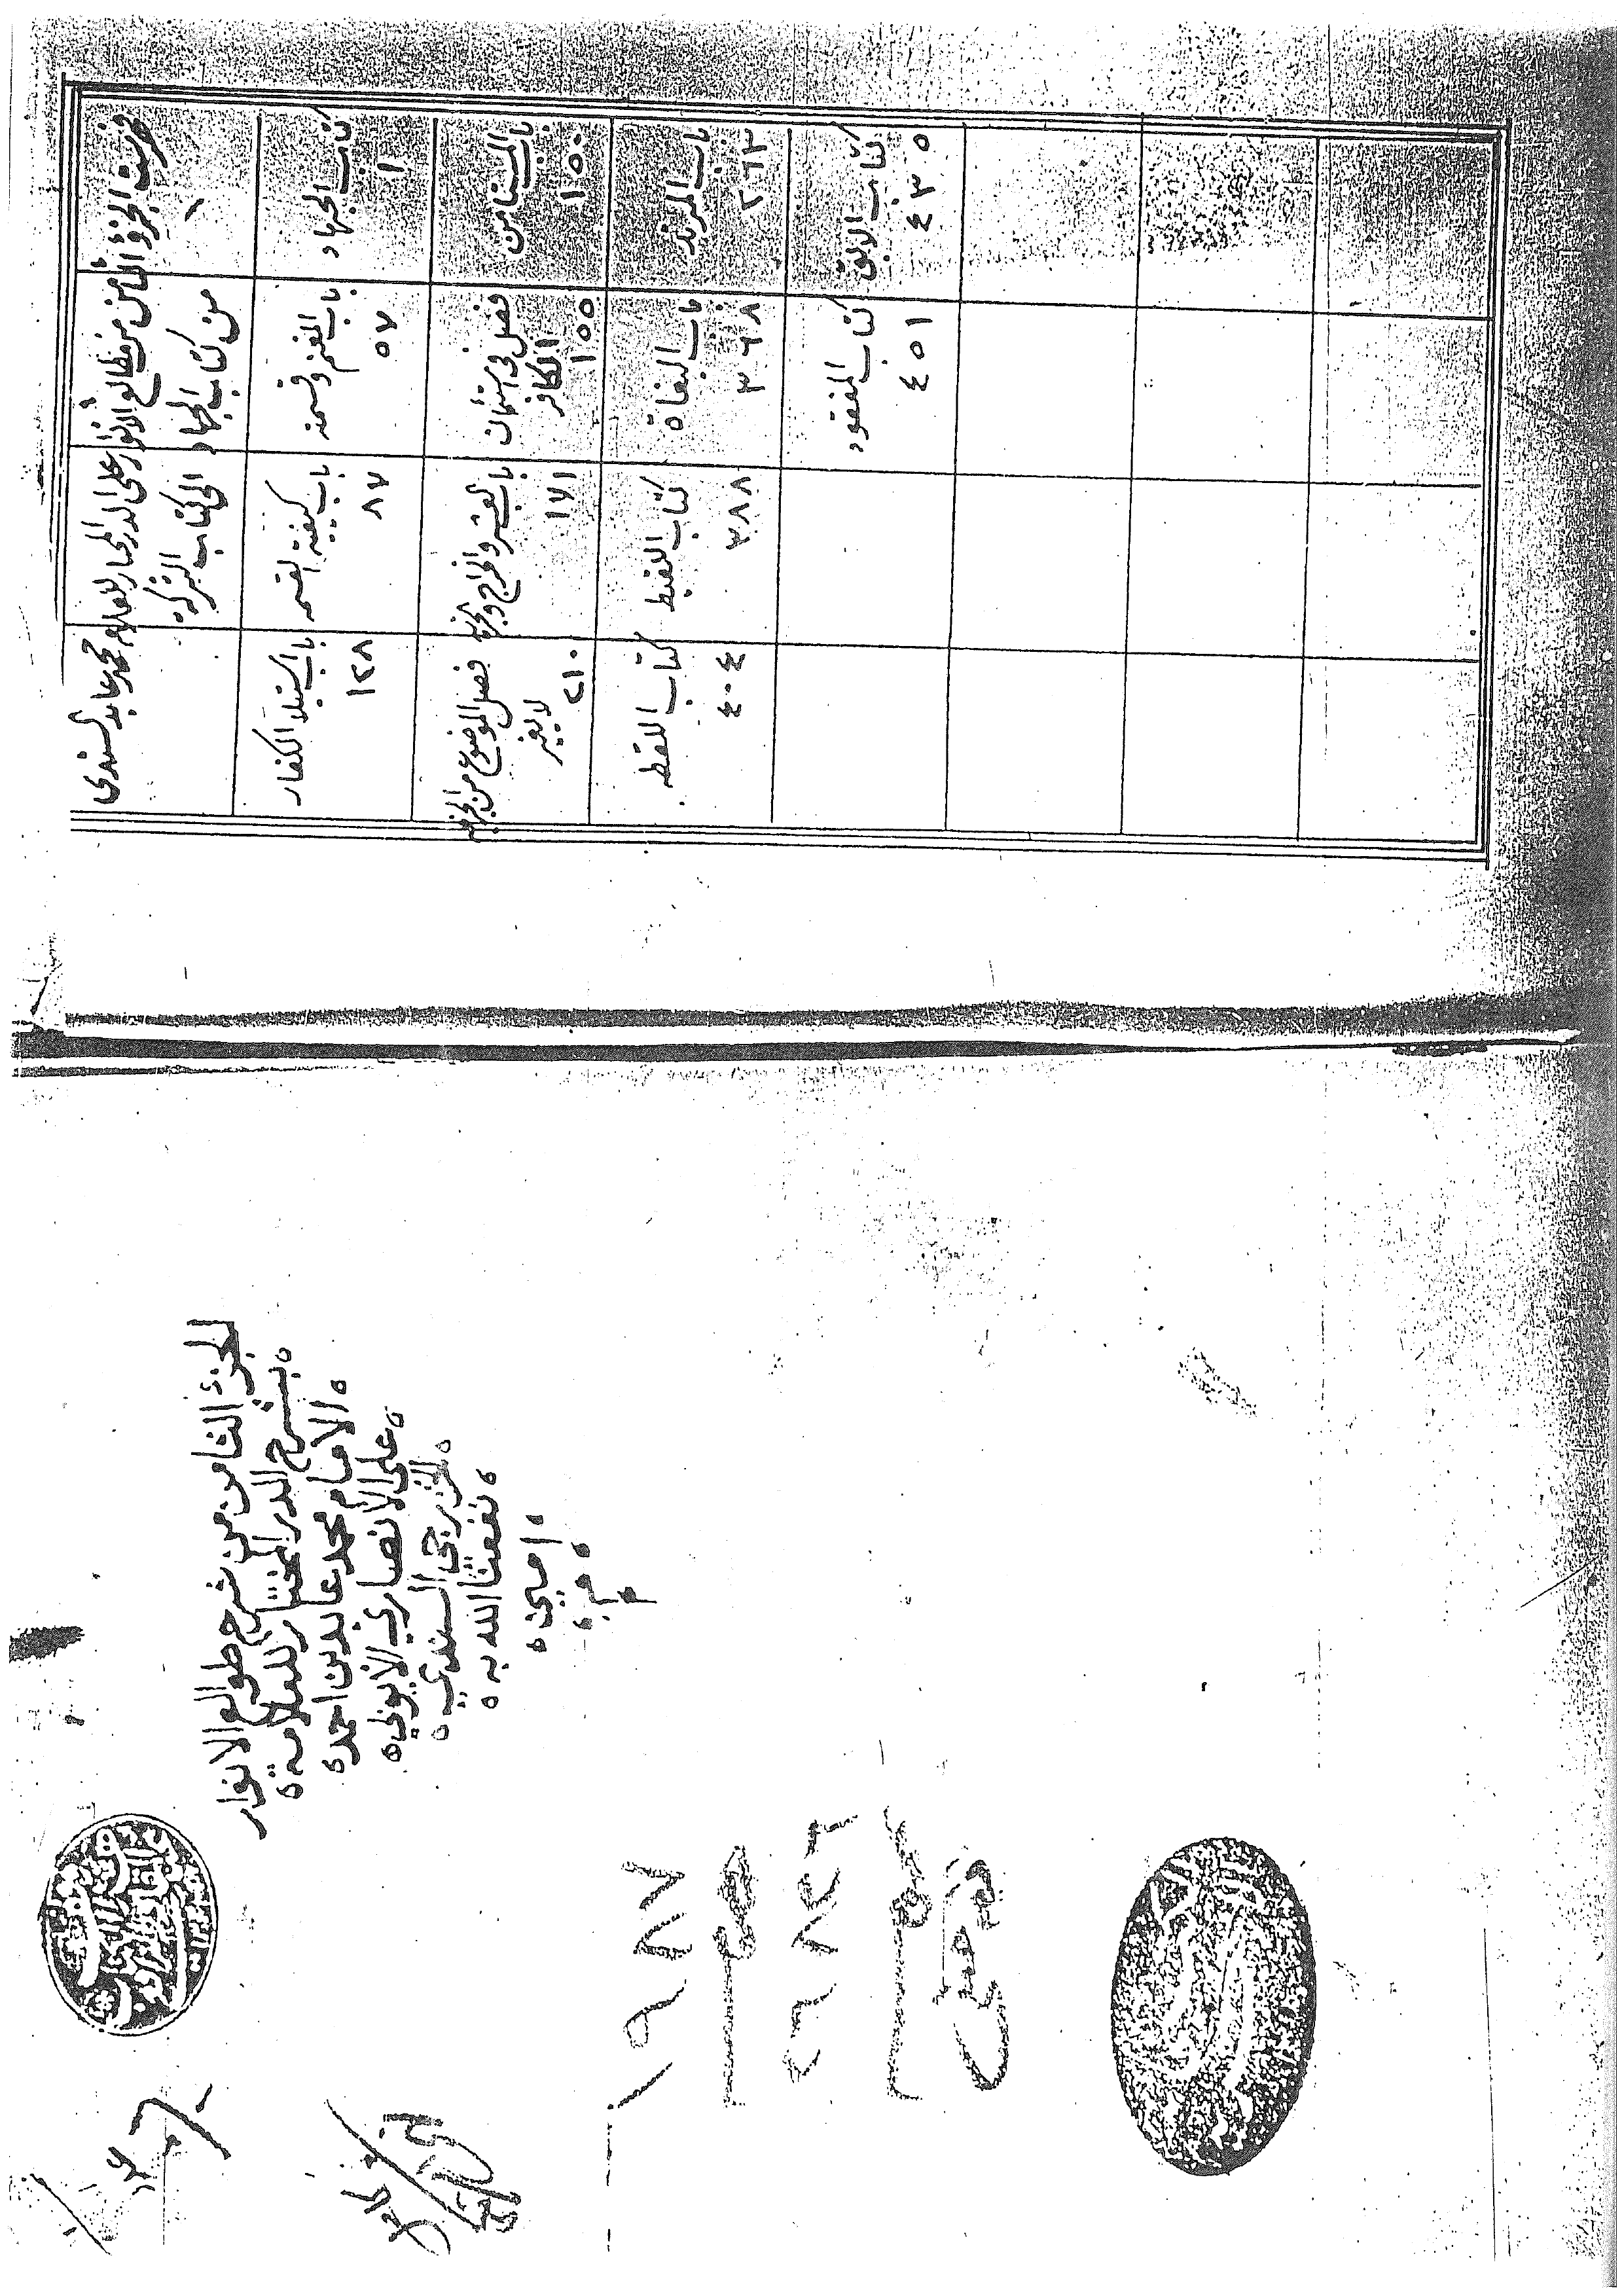 فهرست الجزؤ الثامن من مطالع الانوار على الدر المختار للعلام محمد عابد السندى
من كتاب الجهاد الى كتاب الشركه
كتاب الجهاد
١
باب المغنم وقسمته
٥٧
باب كيفية القسمه
٨٧
باب استيلا الكفار
١٢٨
باب المستامن
١٥٠
فصل فى استئمان
الكافر
١٥٥
باب العشر والخراج والجزيه
١٧١
فصل الموضوع من الجزيه
لا يغير
٢١٠
باب المرتد
٢٦٣
باب البغاة
٣٦٨
كتاب اللقيط
٣٨٨
كتاب اللقطه
٤٠٤
كتاب الابق
٤٣٥
كتاب المفقود
٤٥١
الجزء الثامن من شرح طوالع الانوار
بشرح الدر المختار للعلامة
الامام محمد عابد بن احمد
على الانصاري الايوبي
الخزرجي السندي
نفعنا الله به
امين
م
١٩٨٧
٢٦٨٢٦